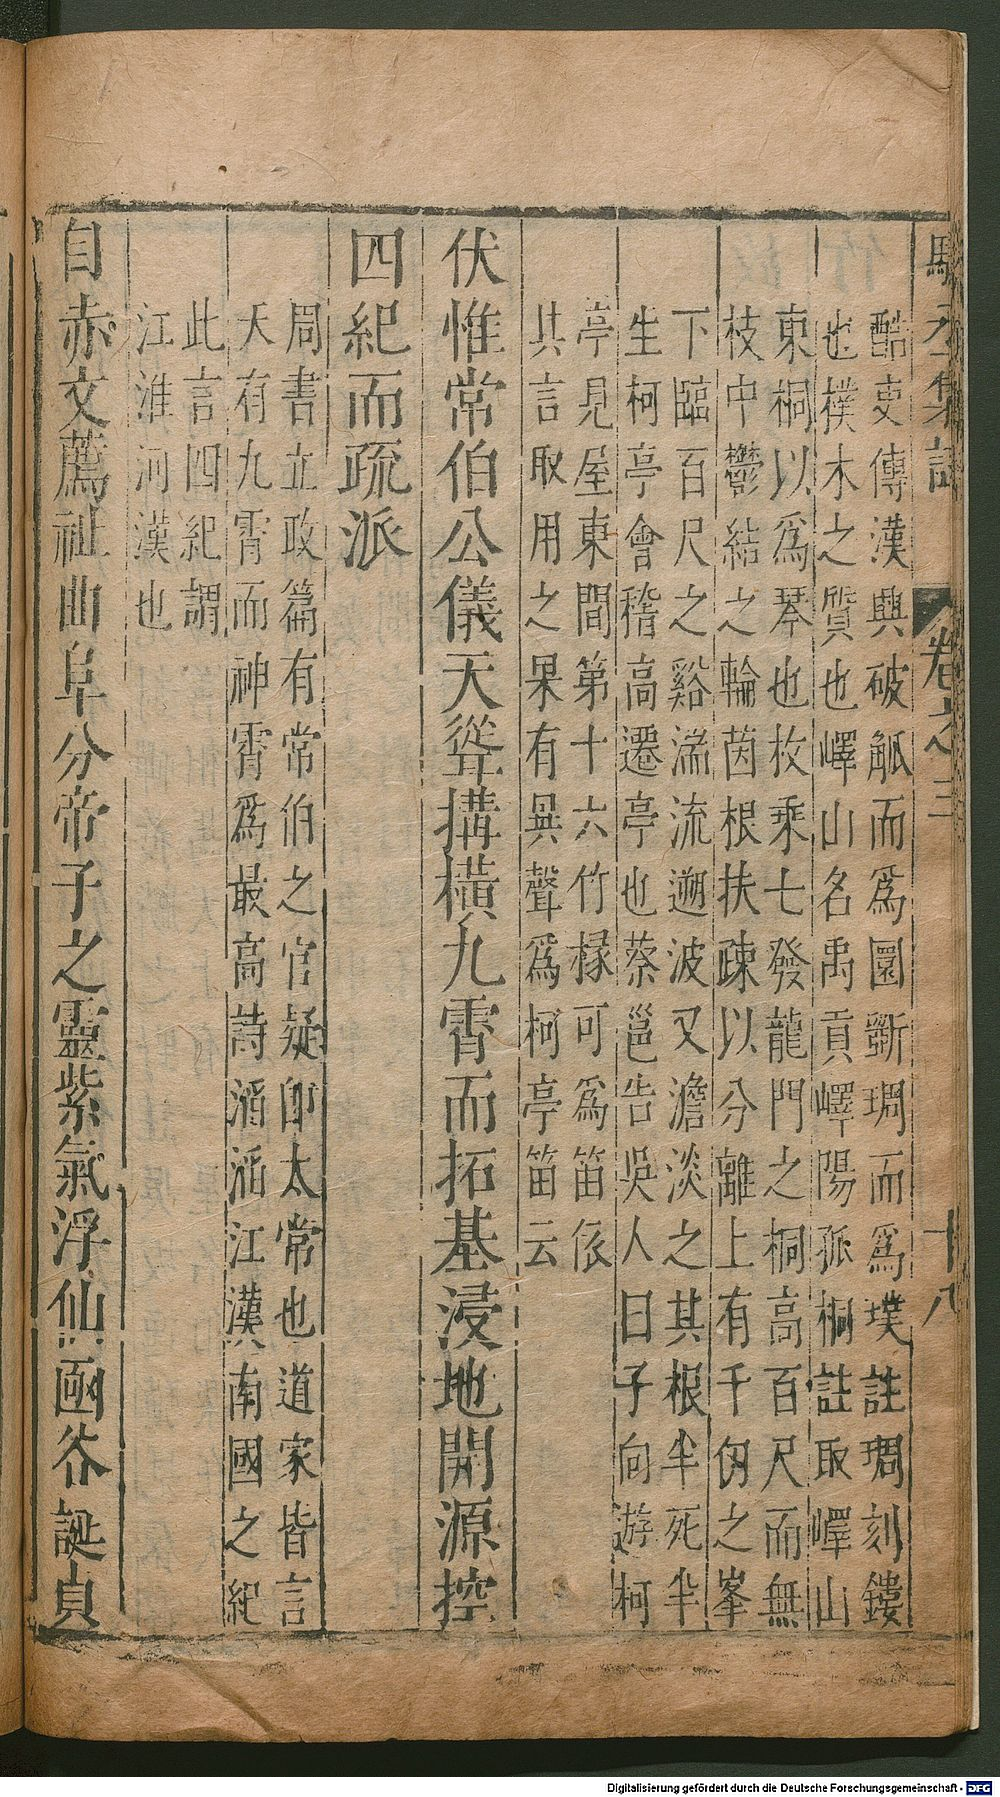 酷吏傳漢興破觚而爲圜斲琱而爲璞註琱刻鏤
也樸木之質也嶧山名禹貢嶧陽孤桐註取嶧山
東桐以爲琴也枚乘七發龍門之桐高百尺而無
枝中鬱結之輪茵根扶疎以分離上有千仞之峯
下臨百尺之谿湍流遡波又澹淡之其根半死半
生柯亭會稽高遷亭也蔡邕告吳人曰子向遊柯
亭見屋東間第十六竹椽可爲笛依
其言取用之果有異聲爲柯亭笛云
伏惟常伯公儀天聳搆橫九霄而拓基浸地開源控
四紀而疏派
周書立政篇有常伯之官疑卽太常也道家皆言
天有九霄而神霄爲最高詩滔滔江漢南國之紀
此言四紀謂
江淮河漢也
自赤文薦祉曲阜分帝子之靈紫氣浮仙函谷誕貞
卷之三
十八
Digitalisierung gefördert durch die Deutsche Forschungsgemeinschaft - DFG